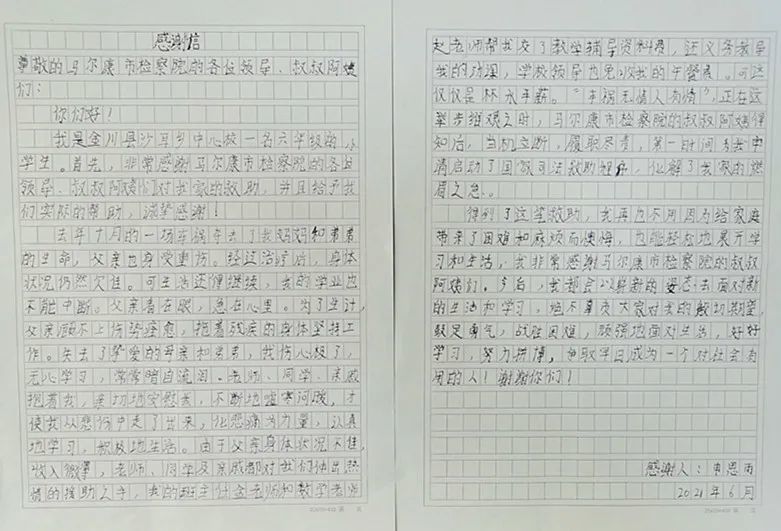 感谢信
尊敬的马尔康市检察院的各位领导、叔叔阿姨
们：
你们好！
我是金川县沙耳乡中心校一名六年级的小
学生。首先，非常感谢马尔康市检察院的各位
领导、叔叔阿姨们对我家的救助，并且给予我
们实际的帮助，诚挚感谢！
去年十月的一场车祸夺去了我妈妈和弟弟
的生命，父亲也身受重伤。经过治疗后，身体
状况仍然欠佳。可生活还得继续，我的学业也
不能中断。父亲看在眼，急在心里。为了生计，
父亲顾不上伤势痊愈，拖着残疾的身体坚持工
作。失去了挚爱的母亲和弟弟，我伤心极了，
无心学习，常常暗自流泪。老师、同学、亲戚
抱着我，亲切地安慰我，不断地嘘寒问暖，才
使我从悲伤中走了出来，化悲痛为力量，认真
地学习，积极地生活。由于父亲身体状况不佳，
收入微薄，老师、同学及亲戚都对我们伸出热
情的援助之手，我的班主任金老师和数学老师
赵老师帮我交了教学辅导资料费，还义务教导
我的功课，学校领导也免收我的午餐费。可这
仅仅是杯水车薪。“车祸无情人有情”，正在这
举步维艰之时，马尔康市检察院的叔叔阿姨得
知后，当机立断，履职尽责，第一时间为我申
请启动了国家司法救助程序，化解了我家的燃
眉之急。
得到了这笔救助，我再也不用因为给家庭
带来了困难和麻烦而懊悔，也能轻松地展开学
习和生活，我非常感谢马尔康市检察院的叔叔
阿姨们。今后，我都会以崭新的姿态去面对新
的生活和学习，绝不辜负大家对我的殷切期望，
鼓足勇气，战胜困难，顽强地面对生活，好好
学习，努力拼搏，争取早日成为一个对社会有
用的人！谢谢你们！
感谢人：申思雨
2021年6月